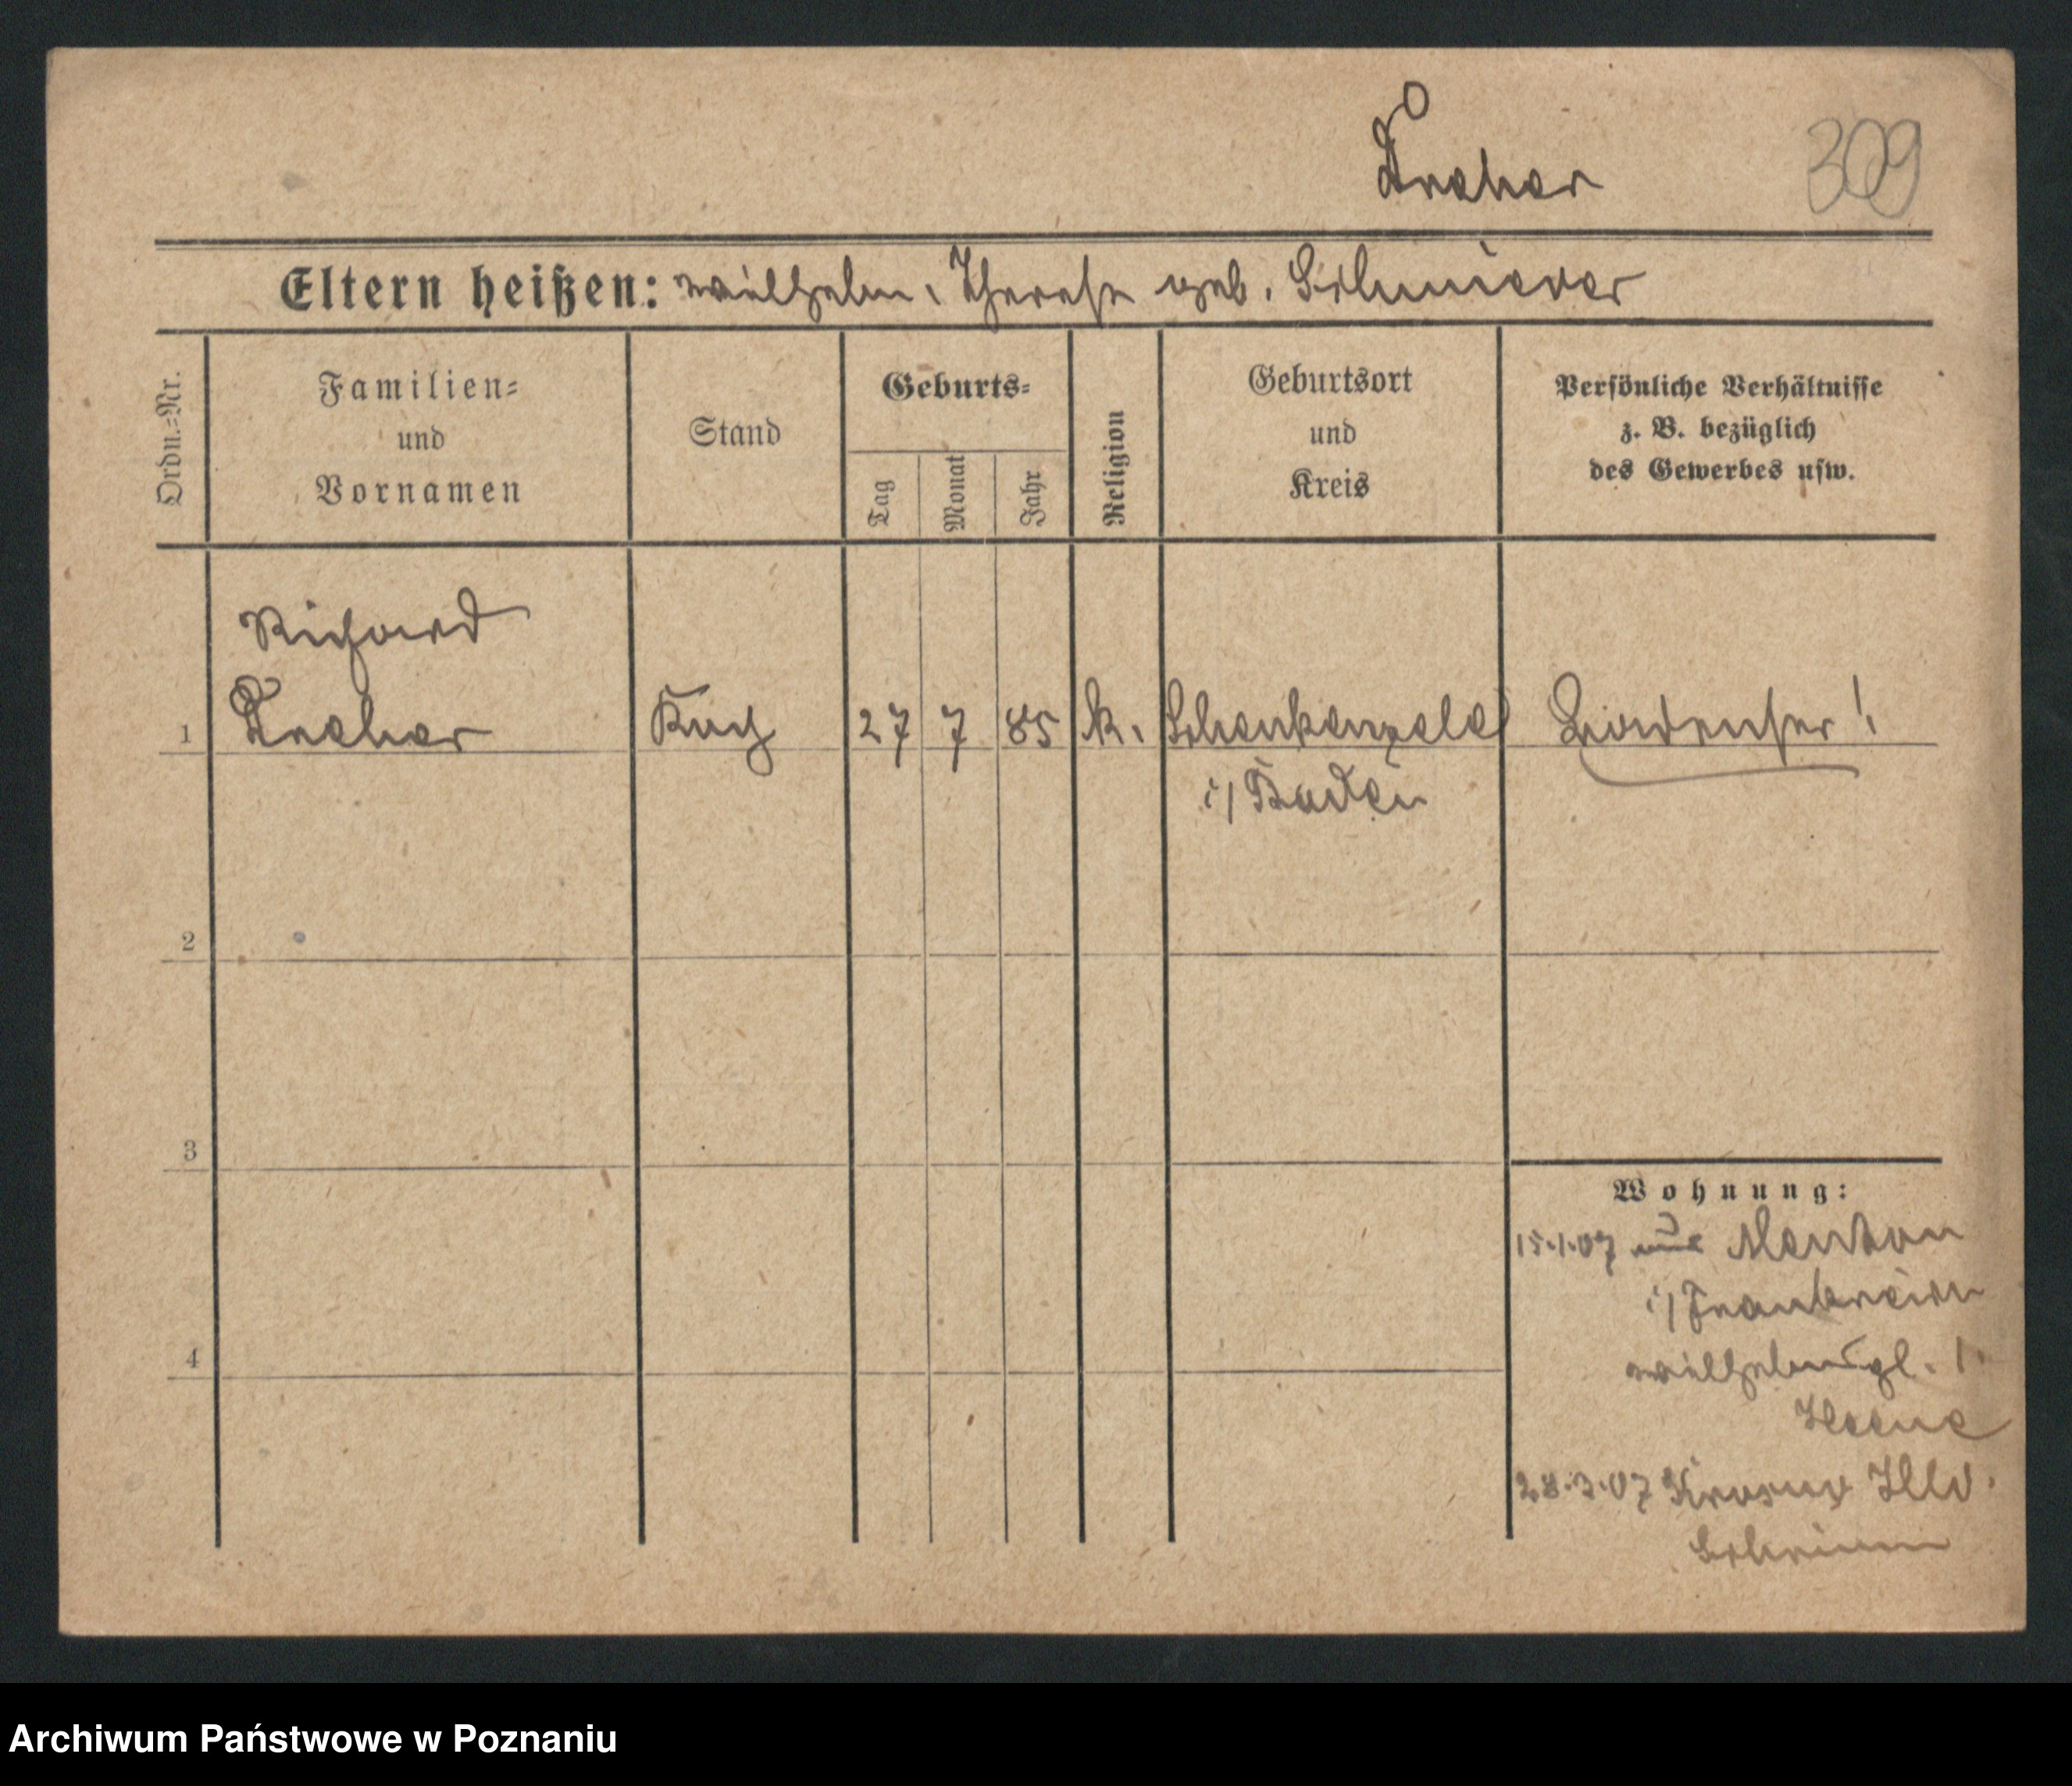 Dreher
309
Eltern heißen: Wilhelm, Therese geb. Schmieder
Ordn.=Nr.
Familien=
und
Vornamen
Stand
Geburts=
Tag
Monat
Jahr
Religion
Geburtsort
und
Kreis
Persönliche Verhältnisse
z. B. bezüglich
des Gewerbes usw.
1
Richard
Dreher
27
7
85
k.
Schenkenzell
i/ Baden
2
3
4
Wohnung:
15.1.07 aus Menton
i/ Frankreich
Wilhelm
28.3.07
Schrimm
Archiwum Państwowe w Poznaniu